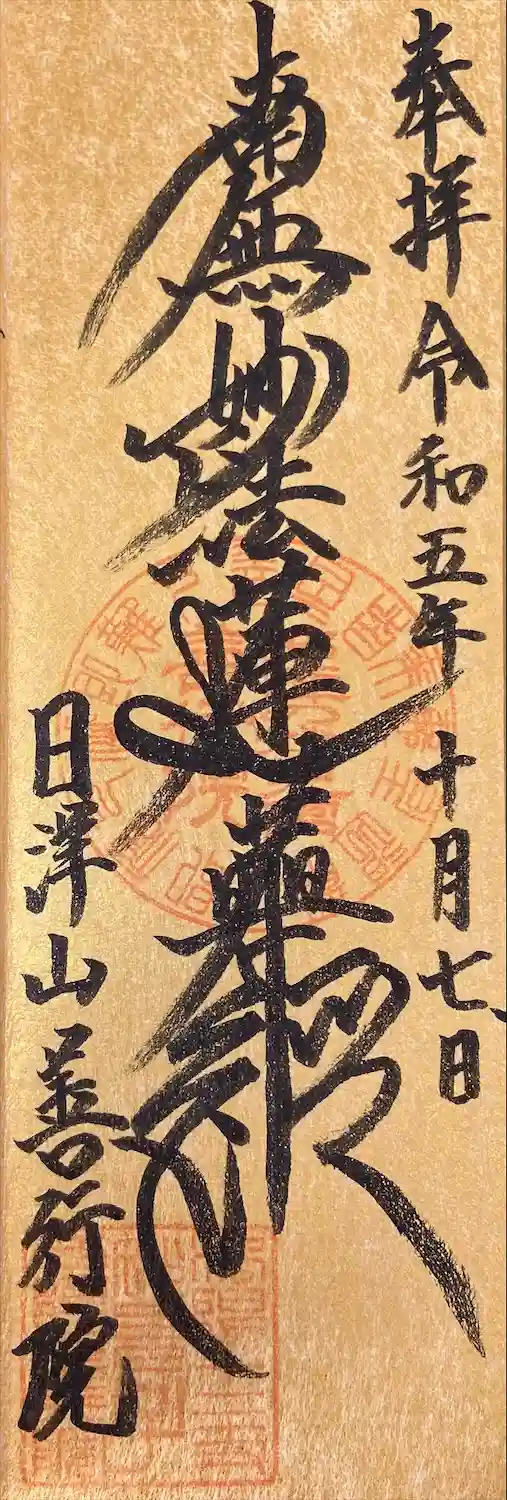 奉拝 令和五年 十月七日
南無妙法蓮華経
日澤山 善行院